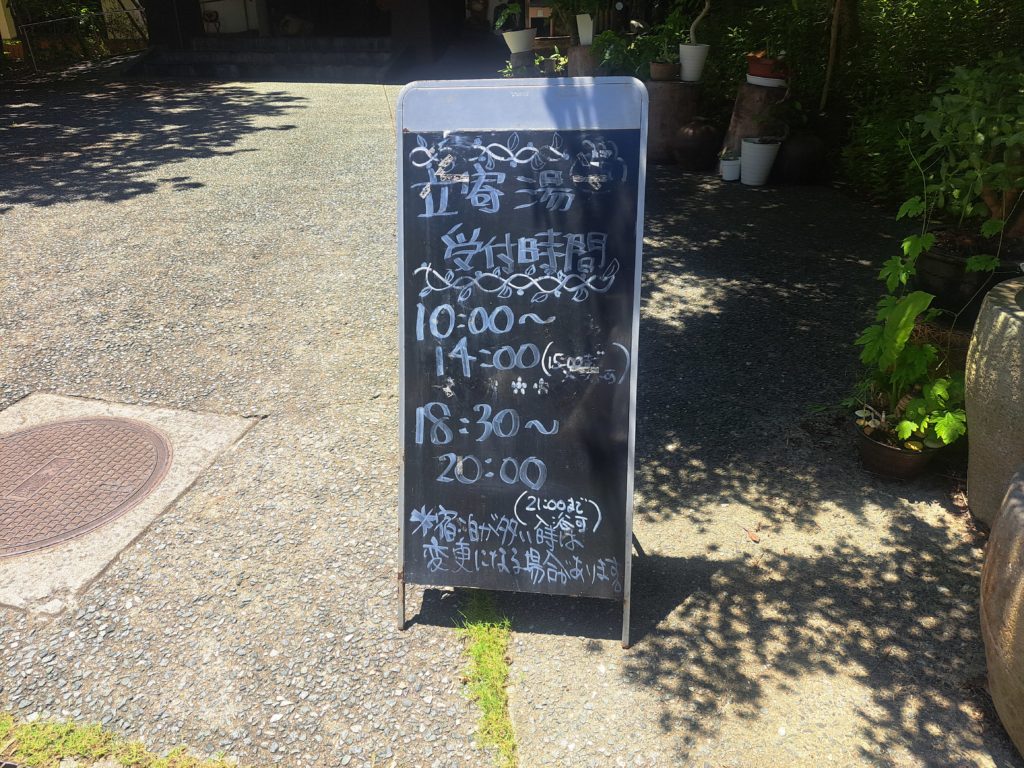 立寄湯
受付時間
10:00～
14:00(15:00まで
入浴可)
18:30～
20:00
(21:00まで
入浴可)
*宿泊が多い時は
変更になる場合があります。